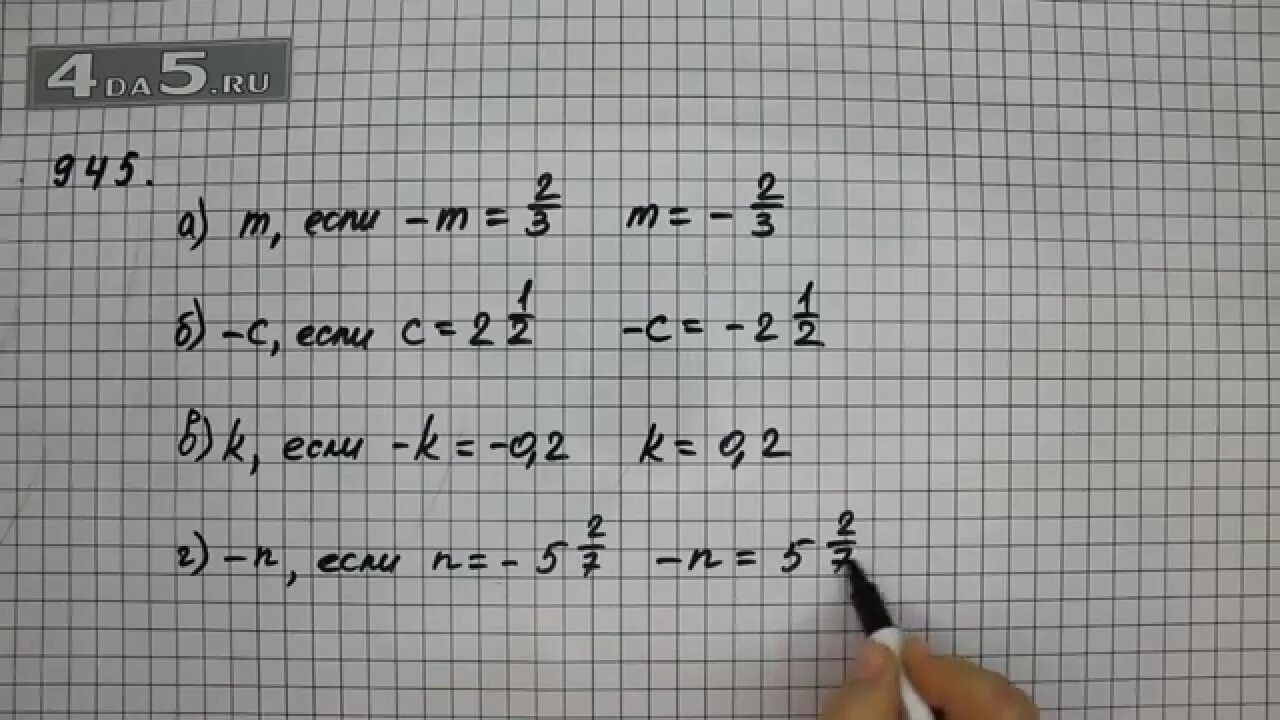 4DA5.RU
945.
а) m, если -m = 2/3 m = - 2/3
б) -c, если c = 2 1/2 -c = - 2 1/2
в) k, если -k = -0,2 k = 0,2
г) -n, если n = - 5 2/7 -n = 5 2/7